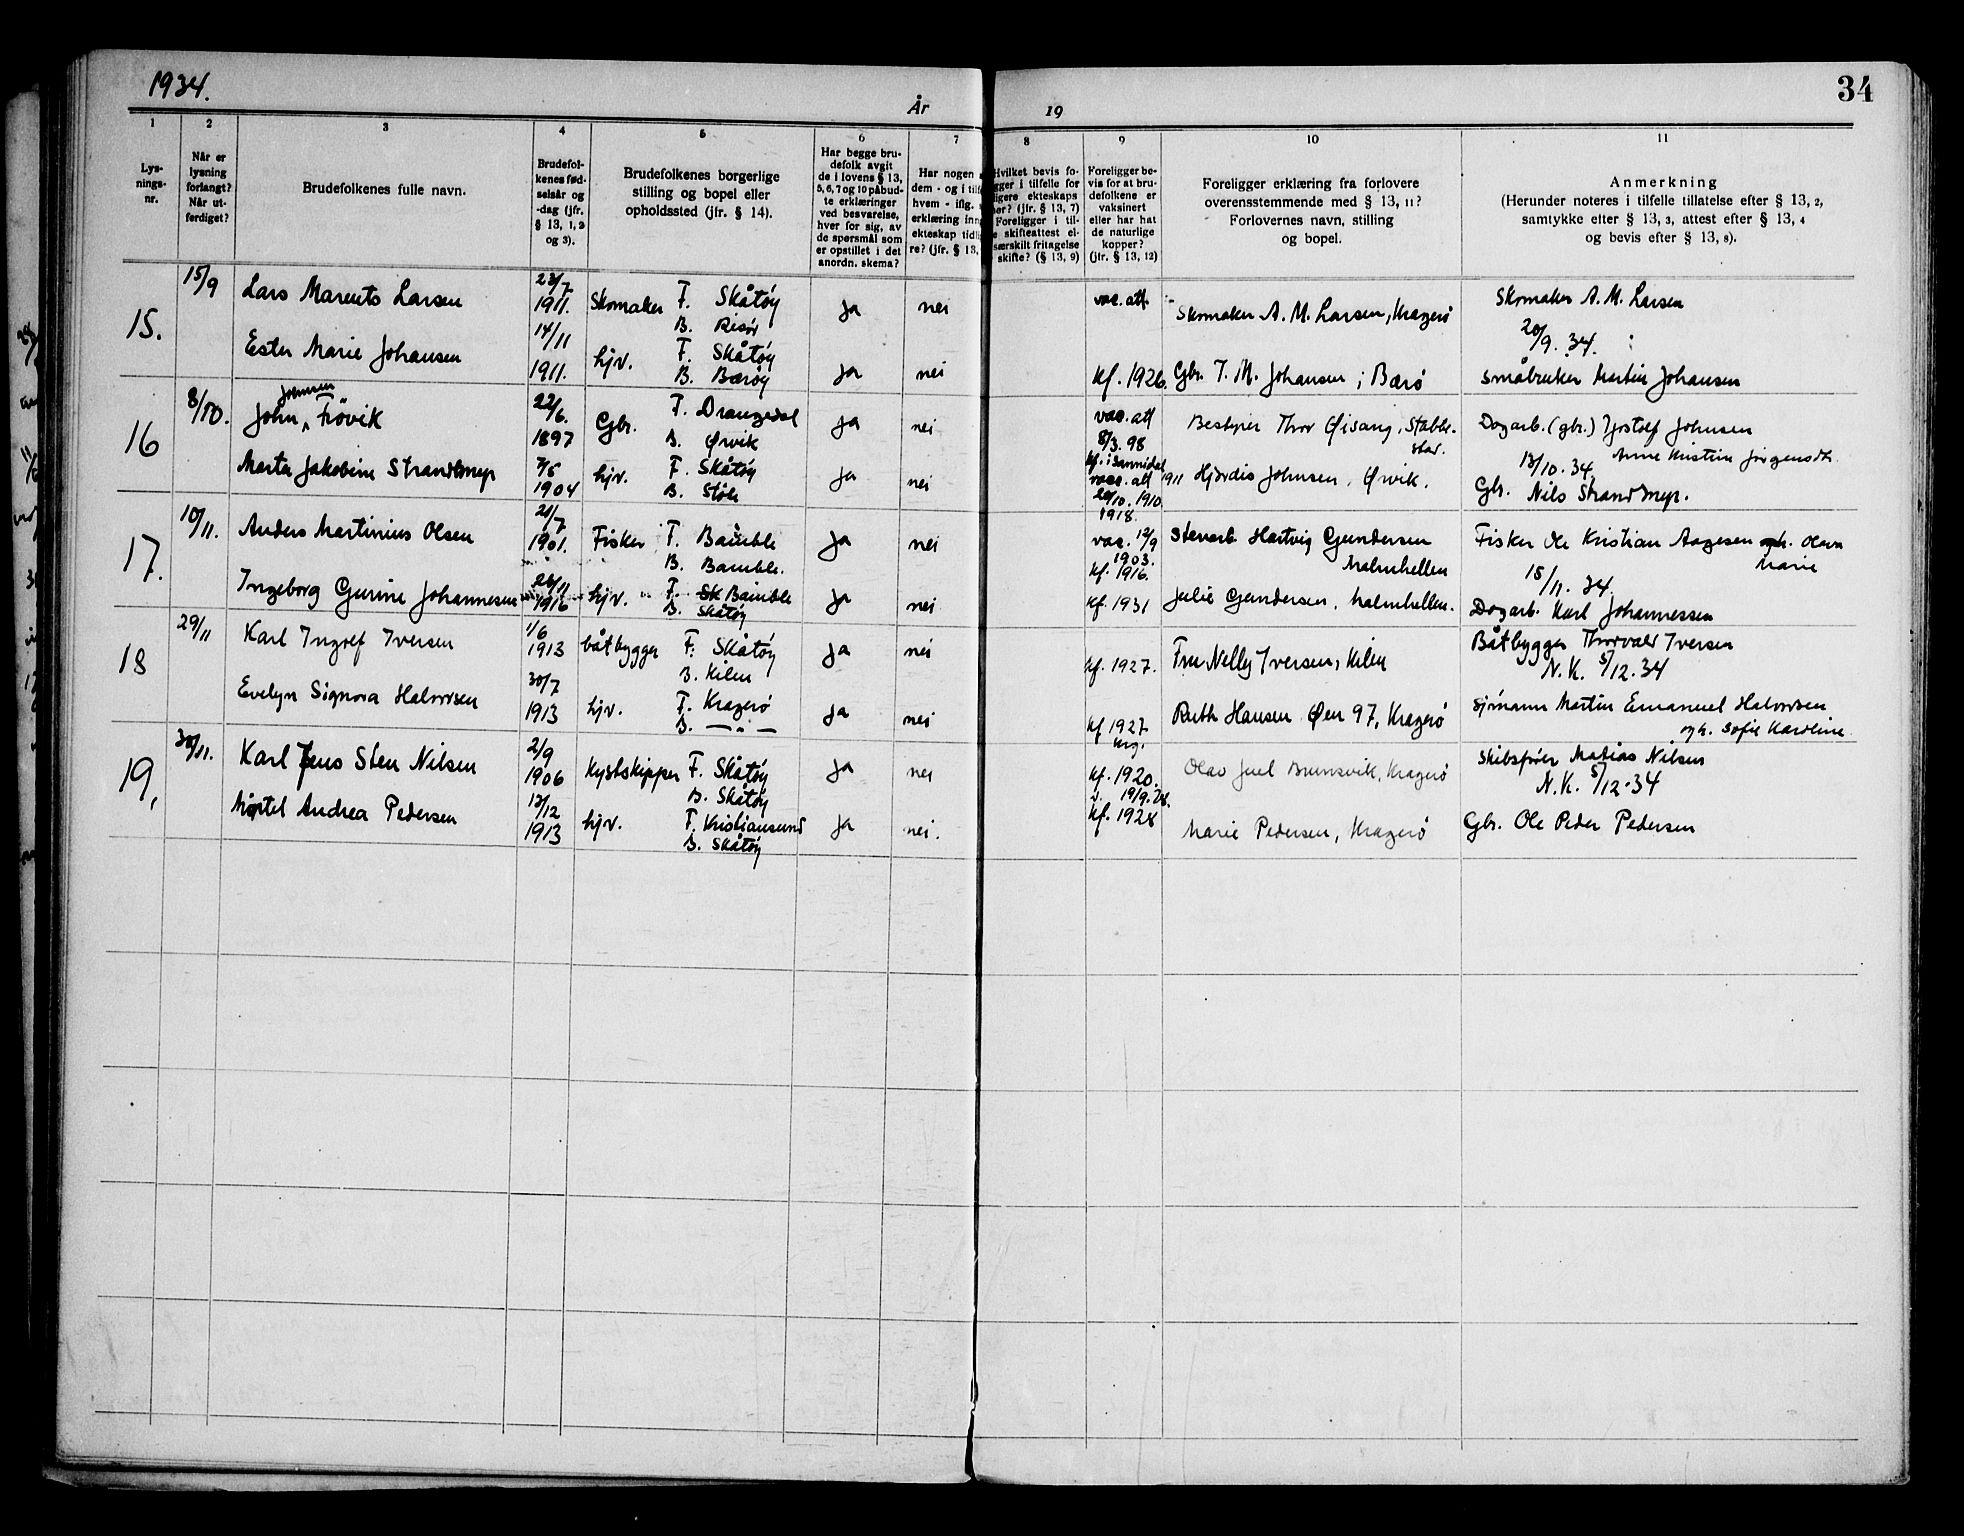 1934.
År
19
34
1
2
3
4
5
6
7
8
9
10
11
Lys-
nings-
nr.
Når er
lysning
forlangt?
Når ut-
ferdiget?
Brudefolkenes fulle navn.
Brudefol-
kenes fød-
selsår og
-dag (jfr.
§ 13, 1, 2
og 3).
Brudefolkenes borgerlige
stilling og bopel eller
opholdssted (jfr. § 14).
Har begge bru-
defolk avgit
de i lovens § 13,
5, 6, 7 og 10 påbud-
te erklæringer
ved besvarelse,
hver for sig, av
de spørsmål som
er opstillet i det
anordn. skema?
Har nogen
dem - og i tilf
hvem - iflg.
erklæring inn
ekteskap tidl
re? (jfr. § 13,
Hvilket bevis fo-
gger i tilfelle for
ligere ekteskaps
ør? (jfr. § 13, 7)
Foreligger i til-
e skifteattest el-
særskilt fritagelse
skifte? (§ 13, 9)
Foreligger be-
vis for at bru-
defolkene er
vaksinert
eller har hat
de naturlige
kopper?
(jfr. § 13, 12)
Foreligger erklæring fra forlovere
overensstemmende med § 13, 11?
Forlovernes navn, stilling
og bopel.
Anmerkning
(Herunder noteres i tilfelle tillatelse efter § 13, 2,
samtykke efter § 13, 3, attest efter § 13, 4
og bevis efter § 13, 8).
15.
15/9
Lars Marents Larsen
23/7
1911.
Skomaker
F. Skåtøy
B. Risør
ja
nei
vac. att.
Skomaker A. M. Larsen, Kragerø
Skomaker A. M. Larsen
20/9. 34.
Ester Marie Johansen
14/11
1911.
hjv.
F. Skåtøy
B. Bærøy
ja
nei
kf. 1926.
Gbr. T. M. Johansen, Bærø
småbruker Martin Johansen
16
8/10.
Johnsen
John Frövik
22/6.
1897
Gbr.
F. Drangedal
B. Ørvik
ja
nei
vac. att
8/3. 98
kf. i Sannidal 1911
Bestyrer Thor Øisang, Stabbe-
stad.
Dagarb. (gbr.) Jostolf Johnsen
Anne Kristine Jörgensdtr.
13/10. 34.
Marta Jakobine Strandmyr
7/5
1904
hjv.
F. Skåtøy
B. Støle
ja
nei
vacc. att
20/10. 1910
1918.
Hjördis Johnsen, Ørvik.
Gbr. Nils Strandmyr.
17.
10/11.
Anders Martinius Olsen
21/7
1901.
Fisker
F. Bamble
B. Bamble.
ja
nei
vac. 12/9
1903.
kf. 1916.
Stenarb. Hartvig Gundersen
Malmhellen
Fisker Ole Kristian Aagesen og h. Olava
Marie
15/11. 34.
Ingeborg Gurine Johannesen
26/11
1916
hjv.
F. Sk Bamble
B. Skåtøy
ja
nei
kf. 1931
Julie Gundersen, Malmhellen.
Dagarb. Karl Johannessen
18
29/11
Karl Ingolf Iversen
1/6
1913
båtbygger
F. Skåtøy
B. Kilen
ja
nei
kf. 1927.
Fru Nelly Iversen, Kilen
Båtbygger Thorvald Iversen
N.K. 5/12.34
Evelyn Signora Halvorsen
30/7
1913
hjv.
F. Kragerö
B. — " —
ja
nei
kf 1927
Krg.
Ruth Hansen Øen 97, Kragerö
sjömann Martin Emanuel Halvorsen
og h. Sofie Karoline.
19.
30/11.
Karl Jens Sten Nilsen
2/9
1906
Kystskipper
F. Skåtøy
B. Skåtøy
ja
nei
kf. 1920.
Olav Juel Brunsvik, Kragerö
Skibsfører Matias Nilsen
N.K. 5/12.34
Andrea Pedersen
13/12
1913
hjv.
F. Kristiansund
B. Skåtøy
ja
nei.
v. 19/9. 28.
kf. 1928
Marie Pedersen, Kragerö
Gbr. Ole Peder Pedersen